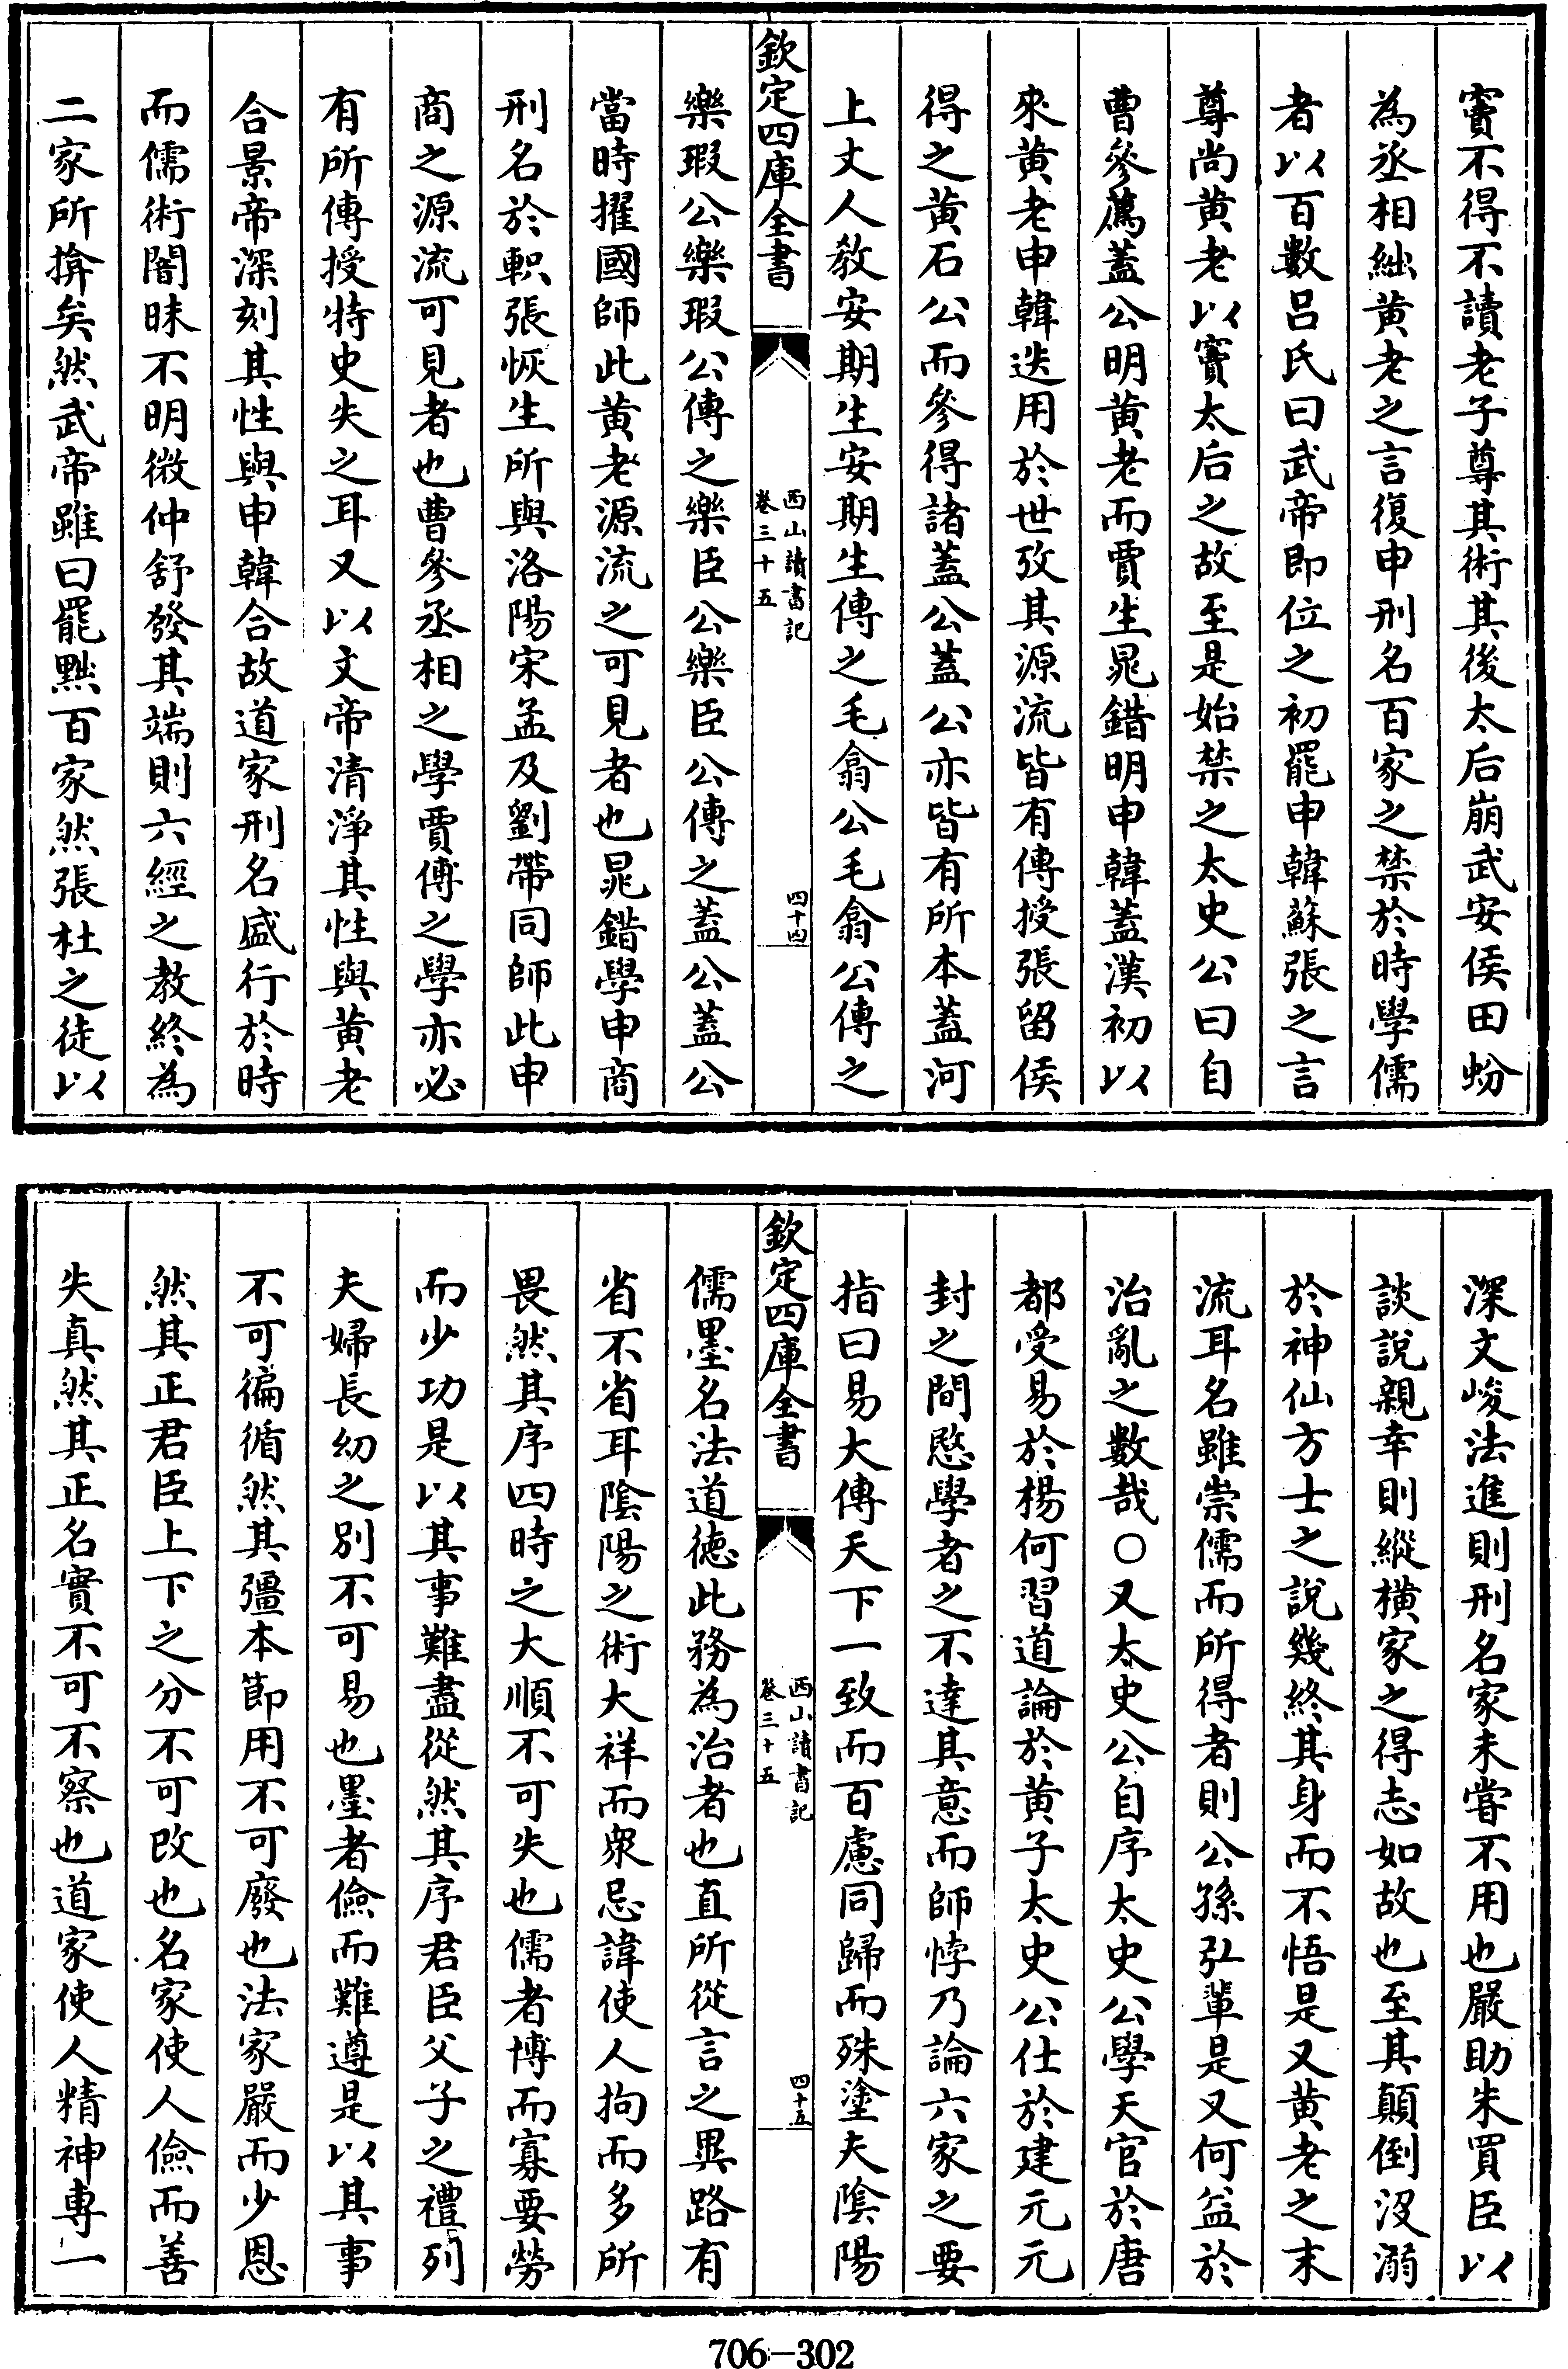 竇不得不讀老子尊其術其後太后崩武安侯田蚡
為丞相絀黄老之言復申刑名百家之禁於時學儒
者以百數吕氏曰武帝即位之初罷申韓蘇張之言
尊尚黄老以竇太后之故至是始禁之太史公曰自
曹參薦蓋公明黄老而賈生晁錯明申韓蓋漢初以
來黄老申韓迭用於世攷其源流皆有傳授張留侯
得之黄石公而參得諸蓋公蓋公亦皆有所本蓋河
上丈人教安期生安期生傳之毛翕公毛翕公傳之
欽定四庫全書
西山讀書記
卷三十五
四十四
樂瑕公樂瑕公傳之樂臣公樂臣公傳之蓋公蓋公
當時擢國師此黄老源流之可見者也晁錯學申商
刑名於軹張恢生所與洛陽宋孟及劉帶同師此申
商之源流可見者也曹參丞相之學賈傅之學亦必
有所傳授特史失之耳又以文帝清淨其性與黄老
合景帝深刻其性與申韓合故道家刑名盛行於時
而儒術闇昧不明微仲舒發其端則六經之教終為
二家所揜矣然武帝雖曰罷黜百家然張杜之徒以
深文峻法進則刑名家未嘗不用也嚴助朱買臣以
談說親幸則縱横家之得志如故也至其顛倒沒溺
於神仙方士之說幾終其身而不悟是又黄老之末
流耳名雖崇儒而所得者則公孫弘輩是又何益於
治亂之數哉○又太史公自序太史公學天官於唐
都受易於楊何習道論於黄子太史公仕於建元元
封之間愍學者之不達其意而師悖乃論六家之要
指曰易大傳天下一致而百慮同歸而殊塗夫陰陽
欽定四庫全書
西山讀書記
卷三十五
四十五
儒墨名法道德此務為治者也直所從言之異路有
省不省耳陰陽之術大祥而衆忌諱使人拘而多所
畏然其序四時之大順不可失也儒者博而寡要勞
而少功是以其事難盡從然其序君臣父子之禮列
夫婦長幼之别不可易也墨者儉而難遵是以其事
不可徧循然其彊本節用不可廢也法家嚴而少恩
然其正君臣上下之分不可改也名家使人儉而善
失真然其正名實不可不察也道家使人精神専一
706-302